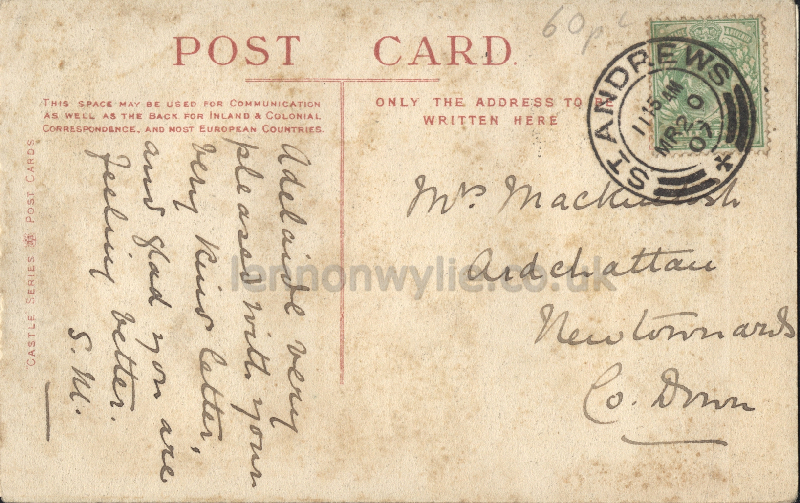 60p
POST CARD.
THIS SPACE MAY BE USED FOR COMMUNICATION
AS WELL AS THE BACK FOR INLAND & COLONIAL
CORRESPONDENCE, AND MOST EUROPEAN COUNTRIES.
ONLY THE ADDRESS TO BE
WRITTEN HERE
ST ANDREWS
11 15 AM
MR 20
07
CASTLE SERIES POST CARDS
Adelaide very
pleased with your
very kind letter,
and glad you are
feeling better.
S. M.
Mrs Mackintosh
Ardchattan
Newtownards
Co. Down
lennonwylie.co.uk